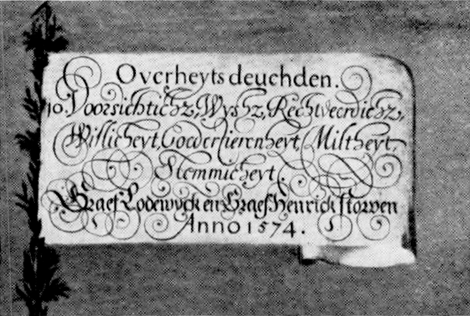 Overheyts deuchden.
Voorsichtichz, Wyshz, Rechtveerdichz,
Willicheyt, Goedertierenheyt, Miltheyt,
Stemmicheyt.
Graef Lodewyck en Graef Henrick storven
Anno 1574.